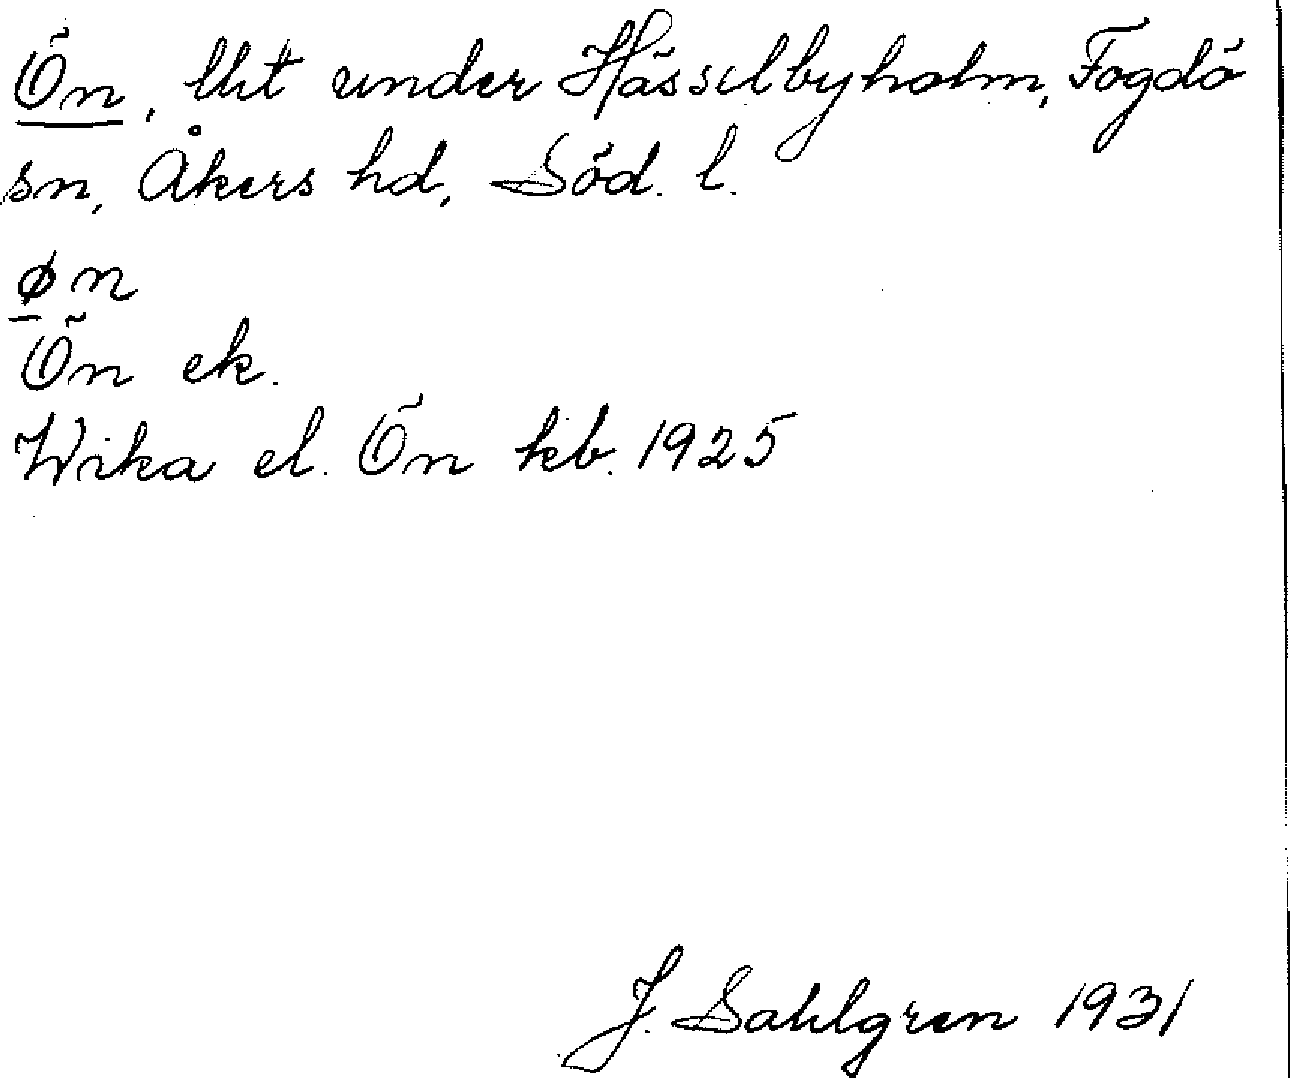 Ön, lht under Hässelbyholm, Fogdö
sn, Åkers hd, Söd. l.
øn
Ön ek.
Wika el. Ön kb. 1925
J. Sahlgren 1931